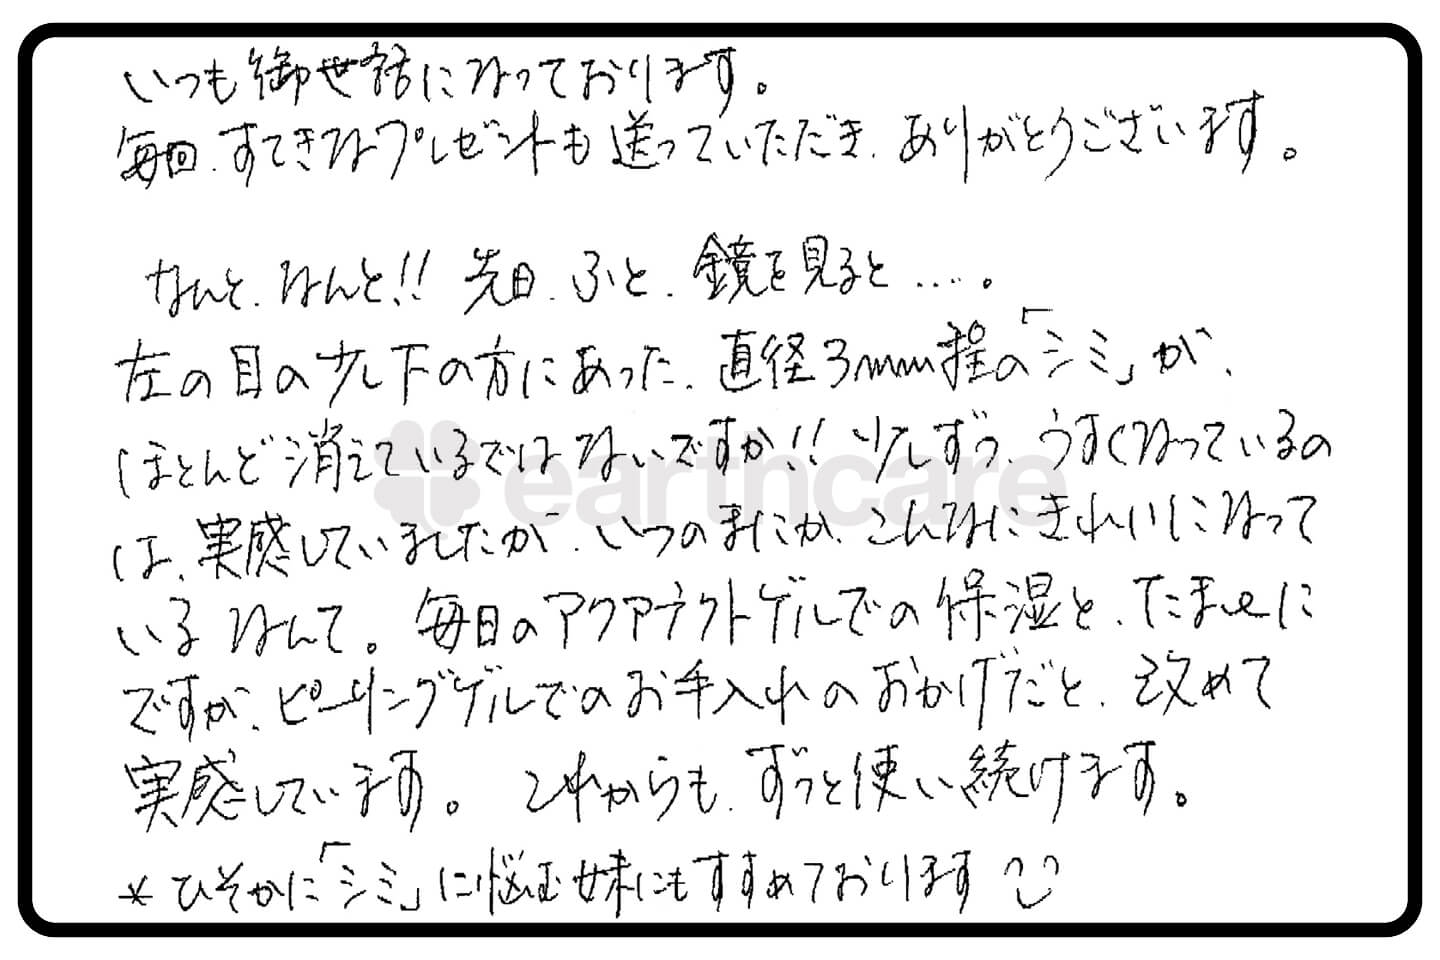 いつも御世話になっております。
毎回、すてきなプレゼントも送っていただき、ありがとうございます。
なんと、なんと!! 先日、ふと、鏡を見ると……。
左の目の少し下の方にあった、直径3mm程の「シミ」が、
ほとんど消えているではないですか!! 少しずつ、うすくなっているの
は、実感していましたが、いつのまにか、こんなにきれいになって
いるなんて。毎日のアクアテクトゲルでの保湿と、たまーに
ですが、ピーリングゲルでのお手入れのおかげだと、改めて
実感しています。これからも、ずっと使い続けます。
*ひそかに「シミ」に悩む妹にもすすめております
earthcare